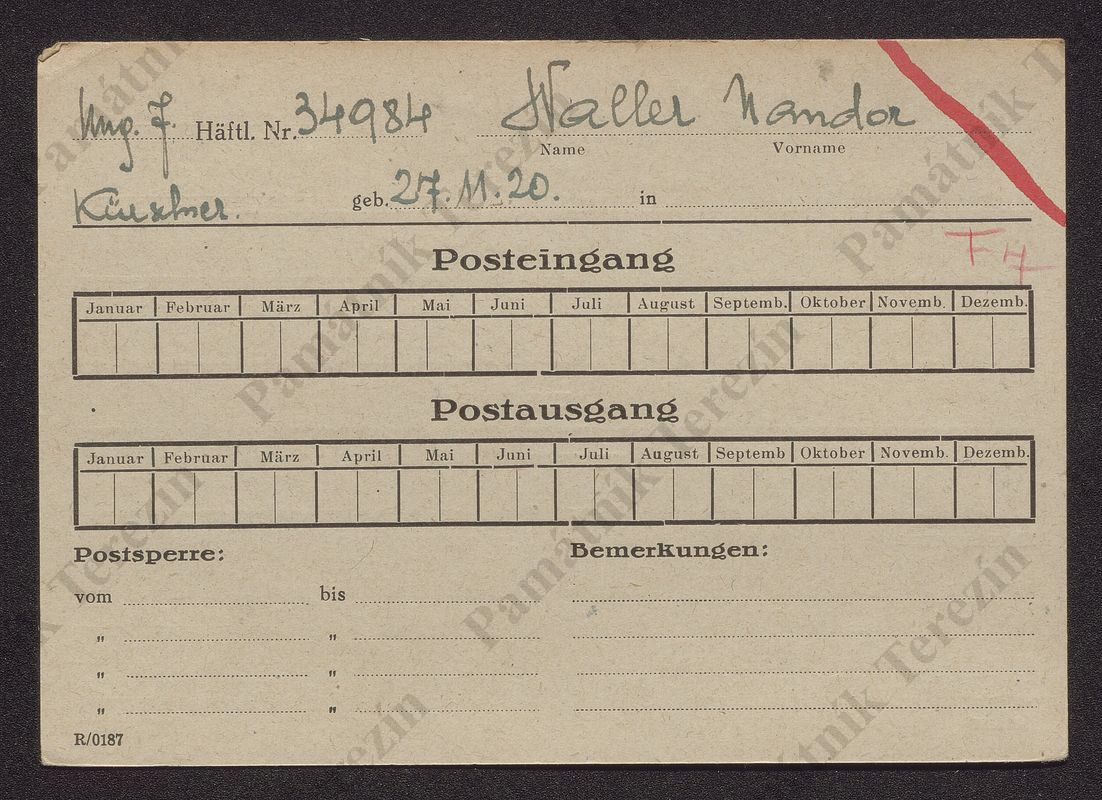 Ung. J. Häftl. Nr. 34984 Waller Nandor
Name Vorname
Kürschner. geb. 27.11.20. in
F H
Posteingang
Januar Februar März April Mai Juni Juli August Septemb. Oktober Novemb. Dezemb.
Postausgang
Januar Februar März April Mai Juni Juli August Septemb Oktober Novemb. Dezemb.
Postsperre: Bemerkungen:
vom bis
" "
" "
" "
R/0187
Památník Terezín